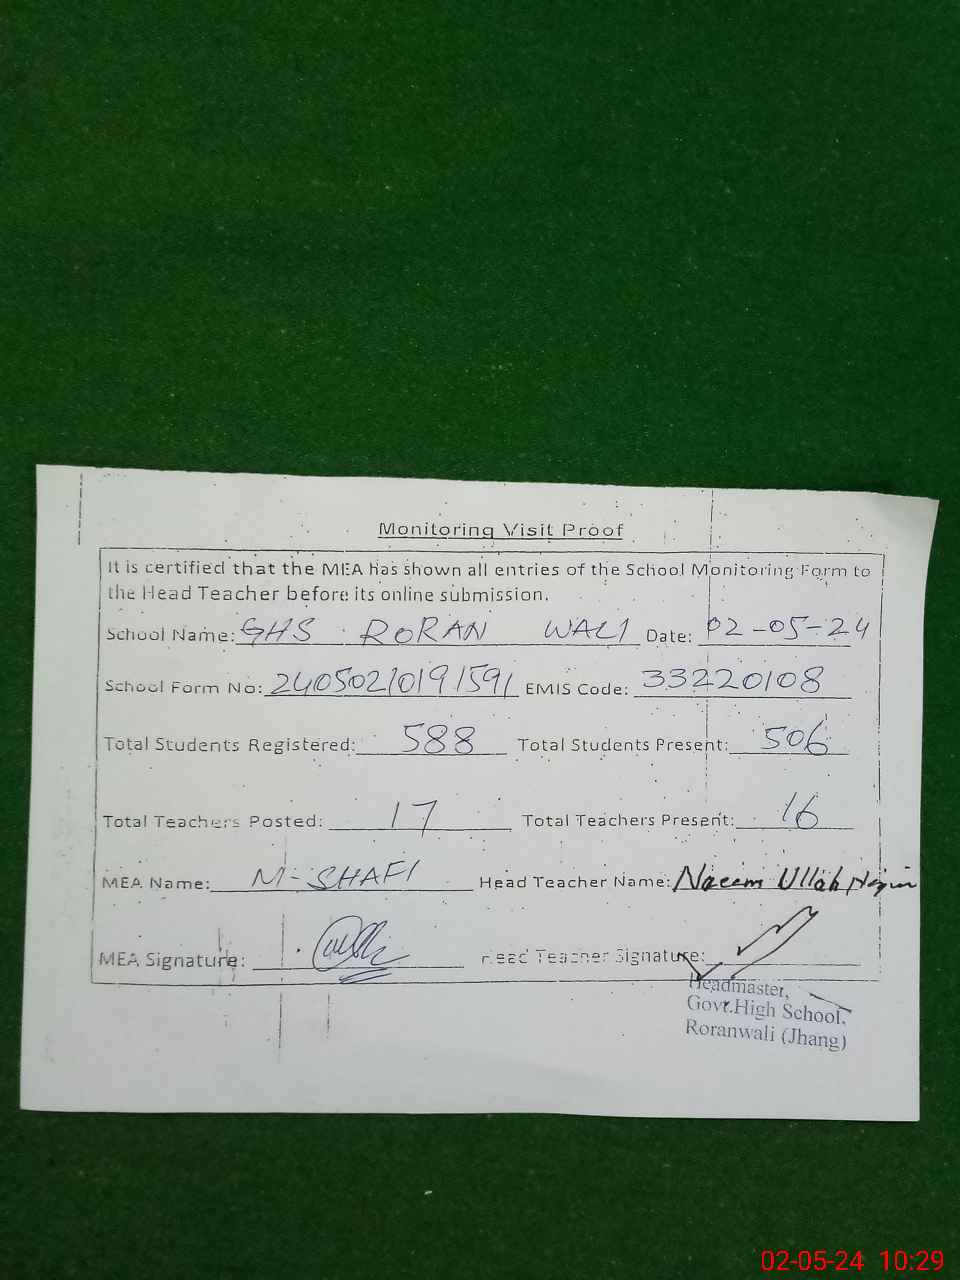 Monitoring Visit Proof
It is certified that the MEA has shown all entries of the School Monitoring Form to
the Head Teacher before its online submission.
School Name: GHS RORAN WALI Date: 02-05-24
School Form No: 2405021019159 EMIS Code: 33220108
Total Students Registered: 588 Total Students Present: 506
Total Teachers Posted: 17 Total Teachers Present: 16
MEA Name: M-SHAFI Head Teacher Name: Naeem Ullah
MEA Signature: Head Teacher Signature:
Headmaster,
Govt.High School,
Roranwali (Jhang)
02-05-24 10:29